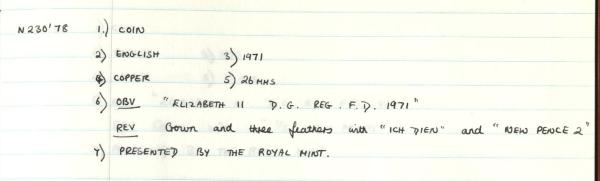 N230'78 1.) COIN
2) ENGLISH 3) 1971
4) COPPER 5) 26 MMS
6) OBV "ELIZABETH II D.G. REG. F.D. 1971"
REV Crown and three feathers with "ICH DIEN" and "NEW PENCE 2"
7) PRESENTED BY THE ROYAL MINT.